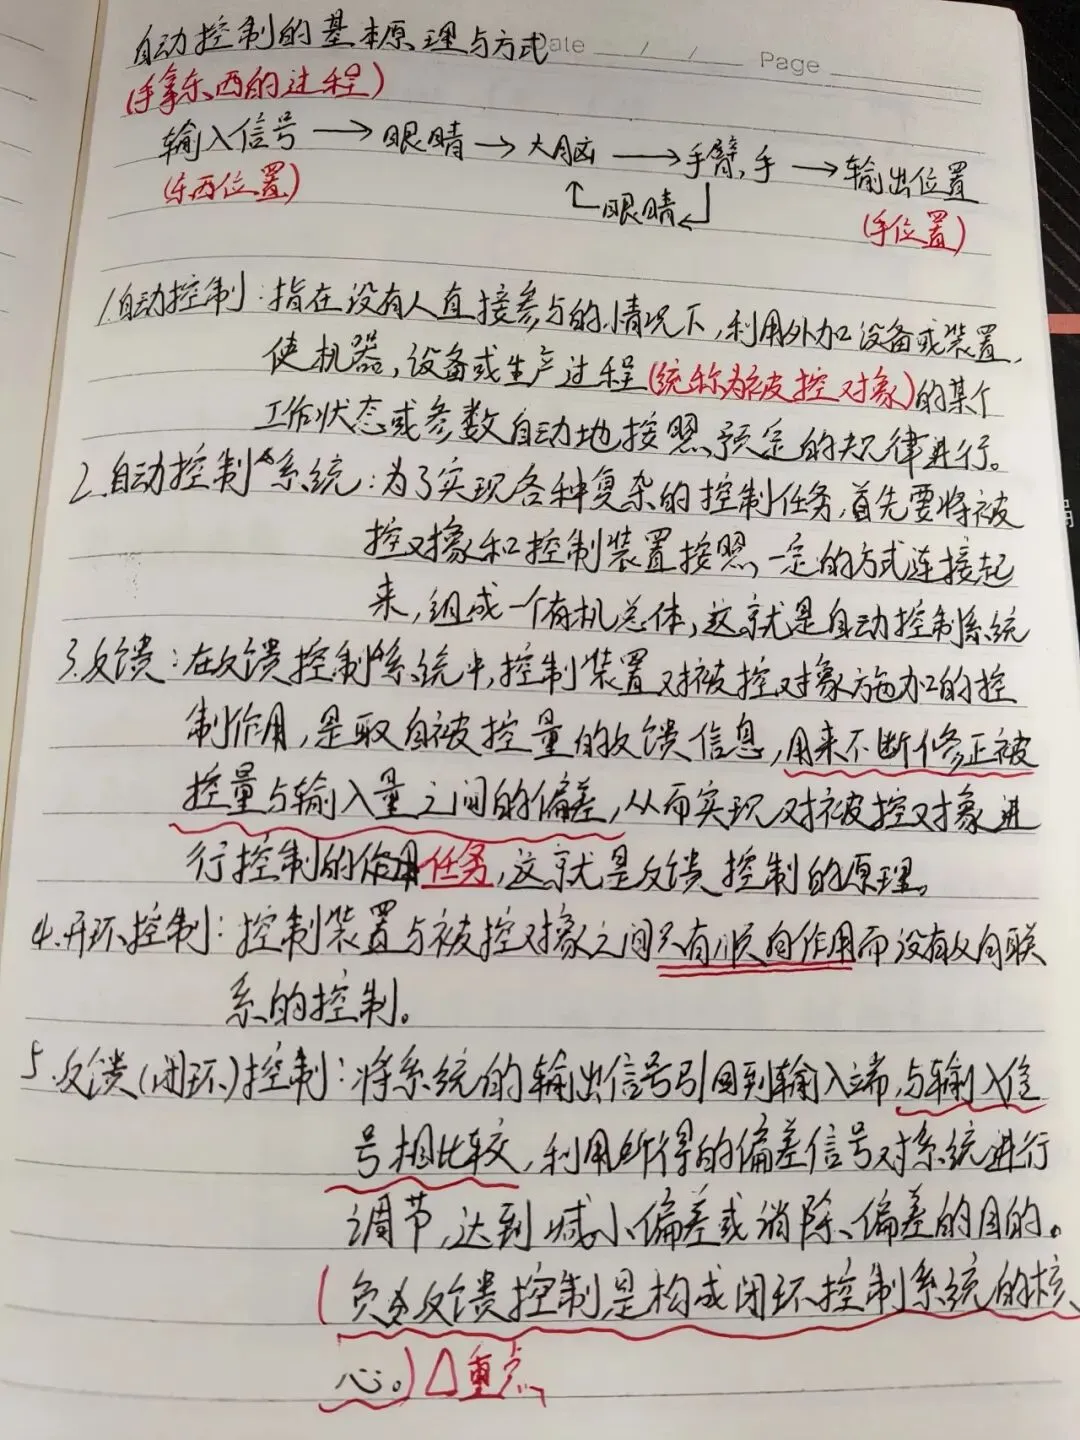 自动控制的基本原理与方式
Date / / Page
(手拿东西的过程)
输入信号→眼睛→大脑→手臂,手→输出位置
(东西位置)
眼睛
(手位置)
1.自动控制:指在没有人直接参与的情况下,利用外加设备或装置,
使机器,设备或生产过程(统称为被控对象)的某个
工作状态或参数自动地按照预定的规律进行。
2.自动控制系统:为了实现各种复杂的控制任务,首先要将被
控对象和控制装置按照一定的方式连接起
来,组成一个有机总体,这就是自动控制系统
3.反馈:在反馈控制系统中,控制装置对被控对象施加的控
制作用,是取自被控量的反馈信息,用来不断修正被
控量与输入量之间的偏差,从而实现对被控对象进
行控制的任务,这就是反馈控制的原理。
4.开环控制:控制装置与被控对象之间只有顺向作用而没有反向联
系的控制。
5.反馈(闭环)控制:将系统的输出信号引回到输入端,与输入信
号相比较,利用所得的偏差信号对系统进行
调节,达到减小偏差或消除偏差的目的。
(负反馈控制是构成闭环控制系统的核
心。)△重点